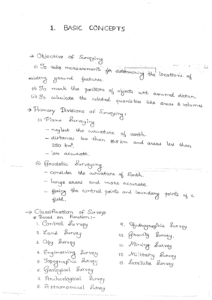 1. BASIC CONCEPTS
→ Objective of Surveying
i) To take measurements for determining the locations of
existing ground features
ii) To mark the positions of objects with ground datum
iii) To calculate the related quantities like areas & volumes
→ Primary Divisions of Surveying:
i) Plane Surveying
- neglect the curvature of earth.
- distances less than and areas less than
- less accurate.
ii) Geodetic Surveying
- consider the curvature of Earth.
- large areas and more accurate.
- fixing the control points and boundary points of a
field.
→ Classification of Surveys
* Based on Function:-
1. Control Survey
2. Land Survey
3. City Survey
4. Engineering Survey
5. Topographic Survey
6. Geological Survey
7. Archaeological Survey
8. Astronomical Survey
9. Hydrographic Survey
10. Gravity Survey
11. Mining Survey
12. Military Survey
13. Satellite Survey